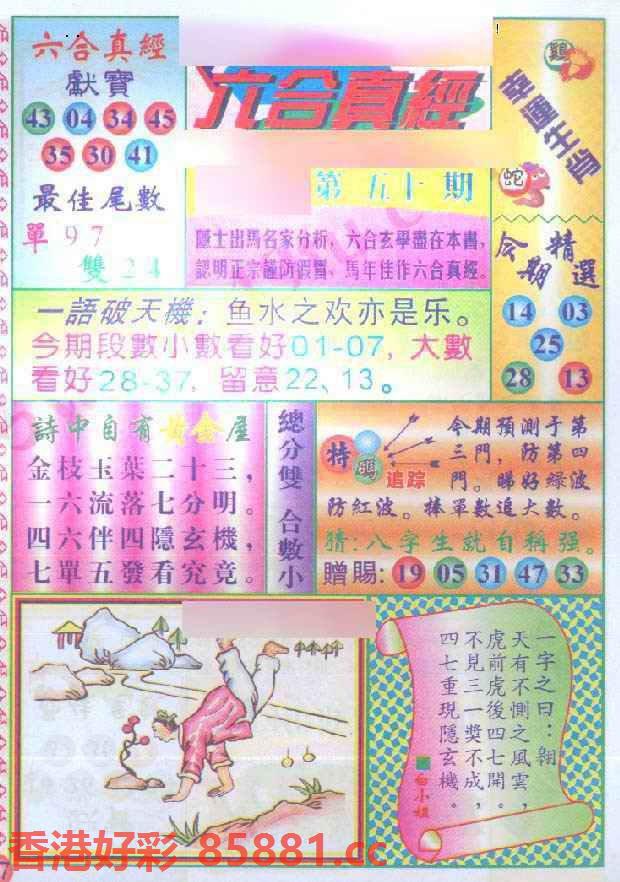 六合真經
獻寶
43 04 34 45
35 30 41
最佳尾數
單97
雙24
六合真經
第五十期
隱士出馬名家分析，六合玄學盡在本書，
認明正宗謹防假冒，馬年佳作六合真經。
幸運生肖
雞
蛇
今期精選
14 03
25
28 13
一語破天機：鱼水之欢亦是乐。
今期段數小數看好01-07，大數
看好28-37，留意22、13。
詩中自有黃金屋
金枝玉葉二十三，
一六流落七分明。
四六伴四隱玄機，
七單五發看究竟。
總分雙 合數小
特碼追踪
今期預測于第
三門，防第四
門。睇好綠波
防紅波。捧單數追大數。
猜：八字生就自稱强。
贈賜：19 05 31 47 33
一字之曰：翱
天有不惻之風雲，
虎前虎後四七開。
不見三一獎不成，
四七重現隱玄機。
白小姐
香港好彩 85881.cc